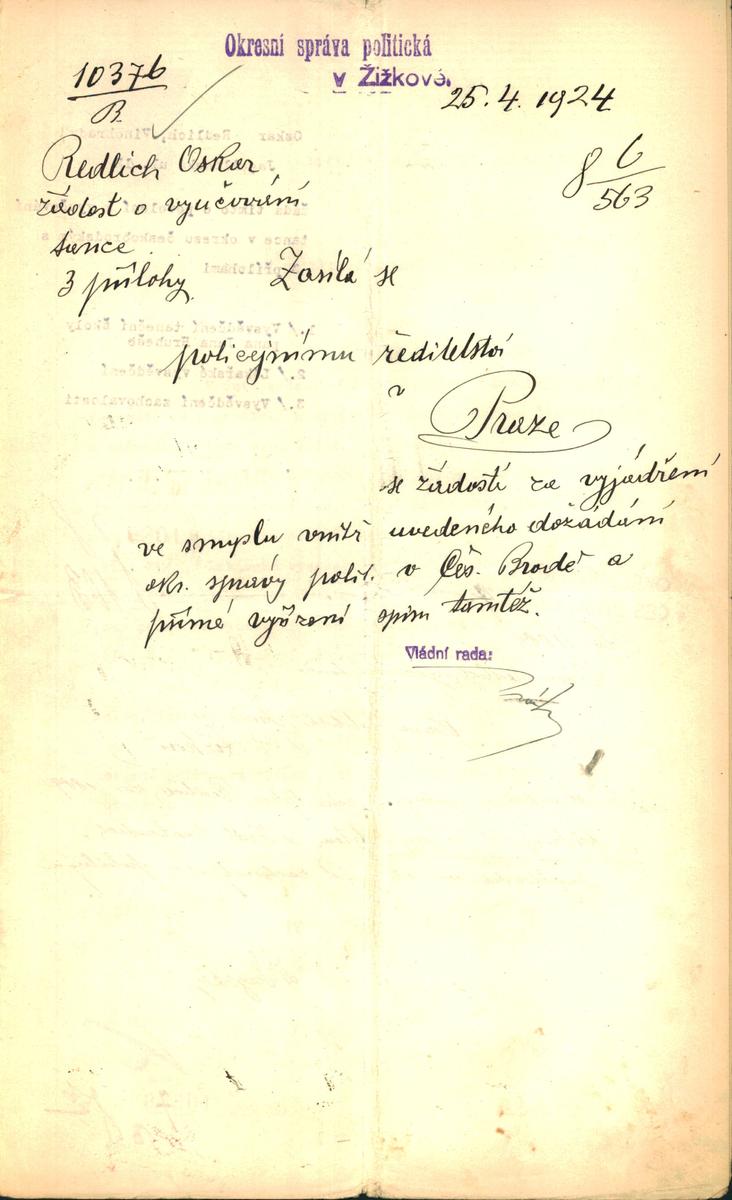 Okresní správa politická
v Žižkově.
10376
R
25.4.1924
Redlich Oskar
žádost o vyučování
tance
3 přílohy.
8 6/563
Zasílá se
policejnímu ředitelství
v
Praze
se žádostí za vyjádření
ve smyslu vnitř uvedeného dožádání
okr. správy polit. v Čes. Brodě a
přímé vyřízení spisu tamtéž.
Vládní rada: